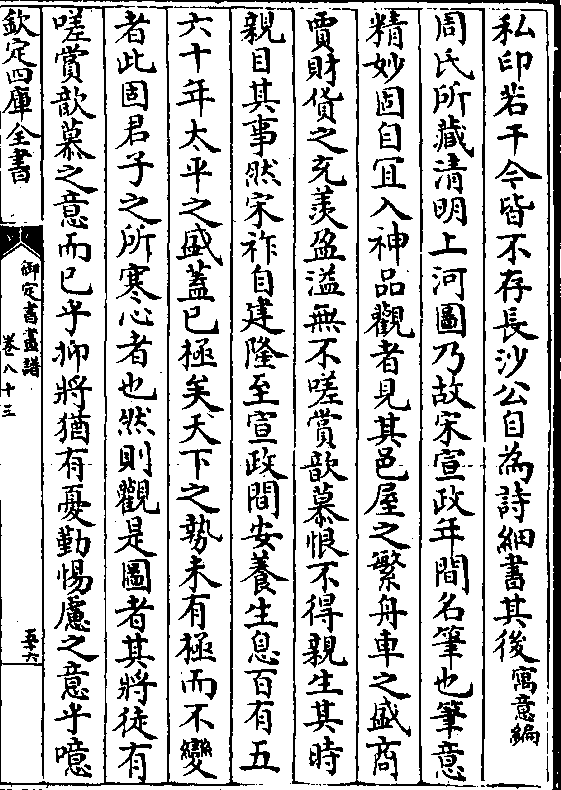 私印若干今皆不存長沙公自為詩細書其後寓意編
周氏所藏清明上河圖乃故宋宣政年間名筆也筆意
精妙固自冝入神品觀者見其邑屋之繁舟車之盛商
賈財貨之充羨盈溢無不嗟賞歆慕恨不得親生其時
親目其事然宋祚自建隆至宣政間安養生息百有五
六十年太平之盛蓋已極矣天下之勢未有極而不變
者此固君子之所寒心者也然則觀是圖者其將徒有
嗟賞歆慕之意而已乎抑將猶有憂勤惕慮之意乎噫
欽定四庫全書
御定書畫譜
卷八十三
五十六